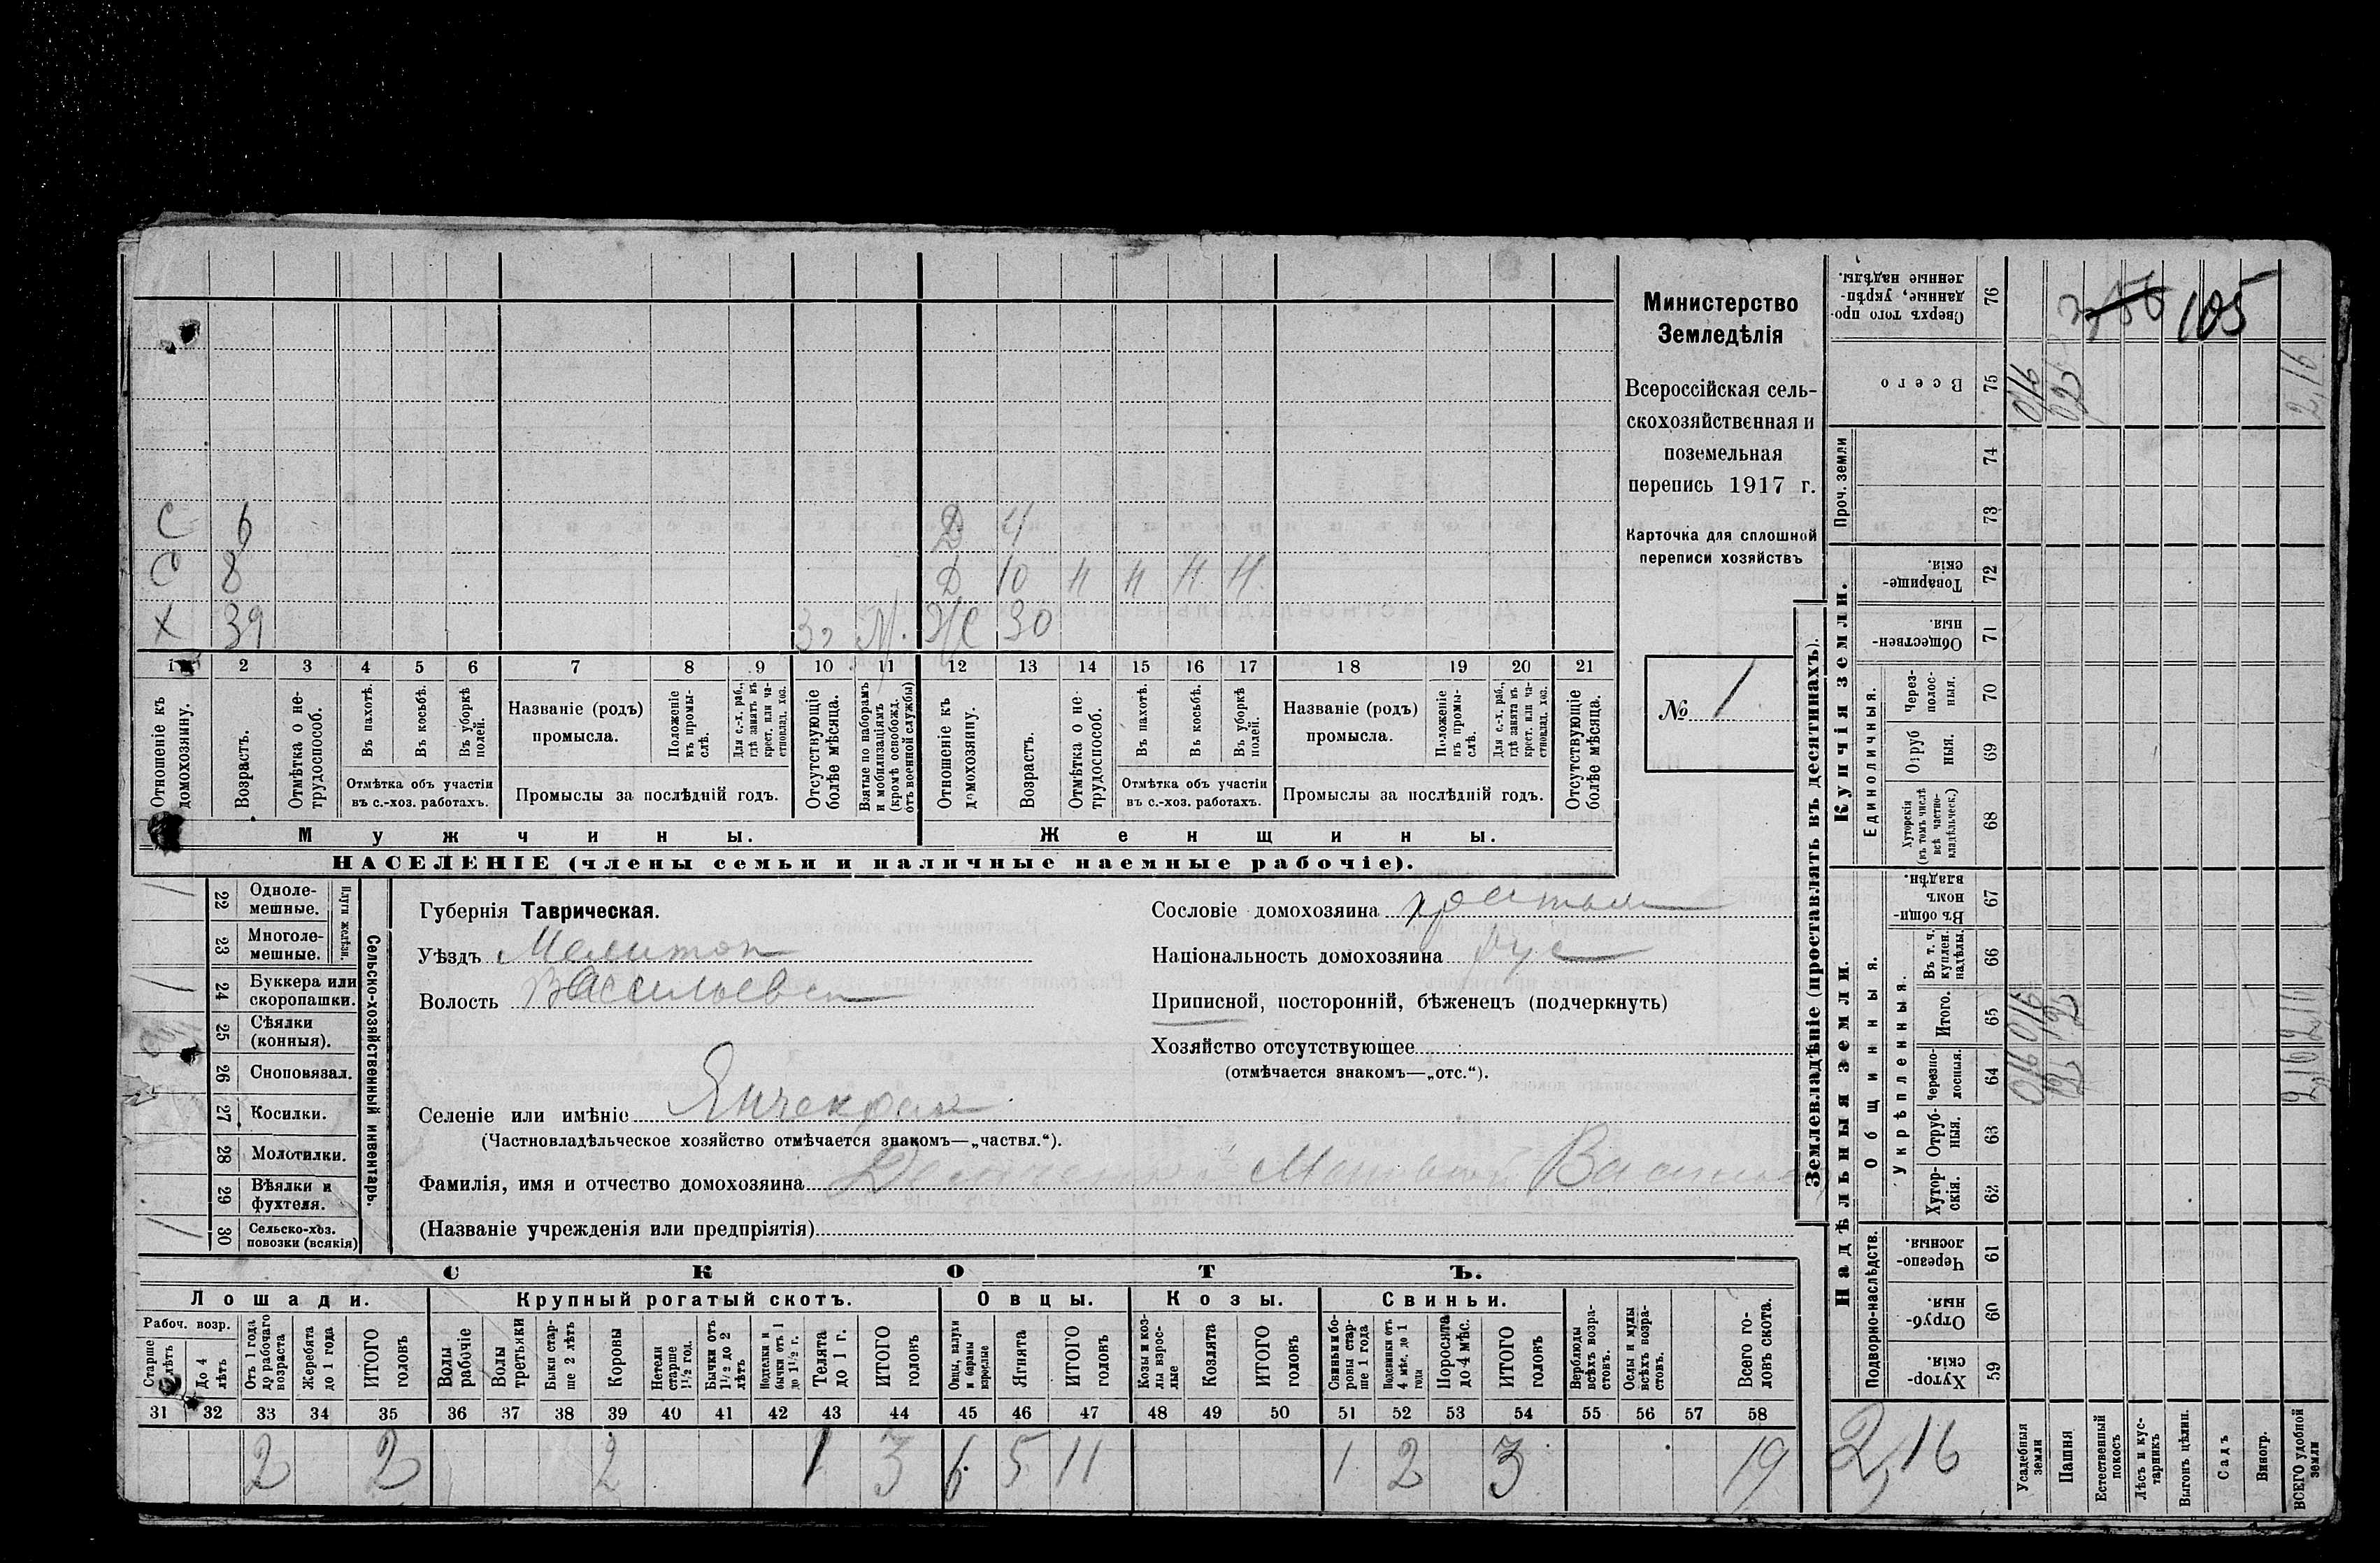 С 6 Д 4
С 8 Д 10 н н н н
Х 39 М. Ж 30
1 2 3 4 5 6 7 8 9 10 11 12 13 14 15 16 17 18 19 20 21
Отношеніе къ домохозяину.
Возрастъ.
Отмѣтка о нетрудоспособ.
Въ пахотѣ.
Въ косьбѣ.
Въ уборкѣ полей.
Отмѣтка объ участіи
въ с.-хоз. работахъ.
Названіе (родъ)
промысла.
Положеніе въ промыслѣ.
Для с.-х. раб., гдѣ занятъ въ крест. или частновлад. хоз.
Промыслы за послѣдній годъ.
Отсутствующіе болѣе мѣсяца.
Взятые по наборамъ и мобилизаціямъ (кромѣ освобожд. отъ военной службы)
Отношеніе къ домохозяину.
Возрастъ.
Отмѣтка о нетрудоспособ.
Въ пахотѣ.
Въ косьбѣ.
Въ уборкѣ полей.
Отмѣтка объ участіи
въ с.-хоз. работахъ.
Названіе (родъ)
промысла.
Положеніе въ промыслѣ.
Для с.-х. раб., гдѣ занята въ крест. или частновлад. хоз.
Промыслы за послѣдній годъ.
Отсутствующіе болѣе мѣсяца.
Мужчины. Женщины.
НАСЕЛЕНІЕ (члены семьи и наличные наемные рабочіе).
Министерство
Земледѣлія
Всероссійская сель-
скохозяйственная и
поземельная
перепись 1917 г.
Карточка для сплошной
переписи хозяйствъ
№ 1
Сельско-хозяйственный инвентарь.
Плуги желѣзн.
22 Одноле-
мешные.
23 Многоле-
мешные.
24 Буккера или
скоропашки.
25 Сѣялки
(конныя).
26 Сноповязал.
27 Косилки.
28 Молотилки.
29 Вѣялки и
фухтеля.
30 Сельско-хоз.
повозки (всякія)
Губернія Таврическая.
Уѣздъ Мелитоп
Волость Васильевск
Селеніе или имѣніе Янчекрак
(Частновладѣльческое хозяйство отмѣчается знакомъ—„частвл.“).
Фамилія, имя и отчество домохозяина
(Названіе учрежденія или предпріятія)
Сословіе домохозяина
Національность домохозяина рус
Приписной, посторонній, бѣженецъ (подчеркнуть)
Хозяйство отсутствующее
(отмѣчается знакомъ—„отс.“).
СКОТЪ.
Лошади. Крупный рогатый скотъ. Овцы. Козы. Свиньи.
Рабоч. возр.
До 4 лѣтъ
Отъ 1 года до рабочаго возраста
Жеребята до 1 года
ИТОГО головъ
Волы рабочіе
Волы третьяки
Быки старше 2 лѣтъ
Коровы
Нетели старше 1½ год.
Бычки отъ 1½ до 2 лѣтъ
Подтелки и бычки отъ 1 до 1½ г.
Телята до 1 г.
ИТОГО головъ
Овцы, валухи и бараны взрослые
Ягнята
ИТОГО головъ
Козы и козлы взрослые
Козлята
ИТОГО головъ
Свиньи и боровы старше 1 года
Подсвинки отъ 4 мѣс. до 1 года
Поросята до 4 мѣс.
ИТОГО головъ
Верблюды всѣхъ возрастовъ.
Ослы и мулы всѣхъ возрастовъ.
Всего головъ скота.
31 32 33 34 35 36 37 38 39 40 41 42 43 44 45 46 47 48 49 50 51 52 53 54 55 56 57 58
2 2 2 1 3 6 5 11 1 2 3 19
Землевладѣніе (проставлять въ десятинахъ).
Купчія земли.
Надѣльныя земли.
Сверхъ того проданные, укрѣпленные надѣлы. 76
105
Всего 75
2,16
Проч. земли 74 73
Товарищескія 72
Общественныя. 71
Единоличныя.
Черезполосныя. 70
Отрубныя. 69
Хуторскія (въ томъ числѣ всѣ частновладѣльческ.) 68
Общинныя.
Въ общинномъ владѣн. 67
Укрѣпленныя.
Въ т. ч. куплен. надѣлы. 66
Итого. 65
Черезполосныя. 64
Отрубныя. 63
Хуторскія. 62
Подворно-наслѣдств.
Черезполосныя. 61
Отрубныя. 60
Хуторскія. 59
2,16
Усадебныя земли
Пашня
Естественный покосъ
Лѣсъ и кустарникъ
Выгонъ цѣлин.
Садъ
Виногр.
ВСЕГО удобной земли